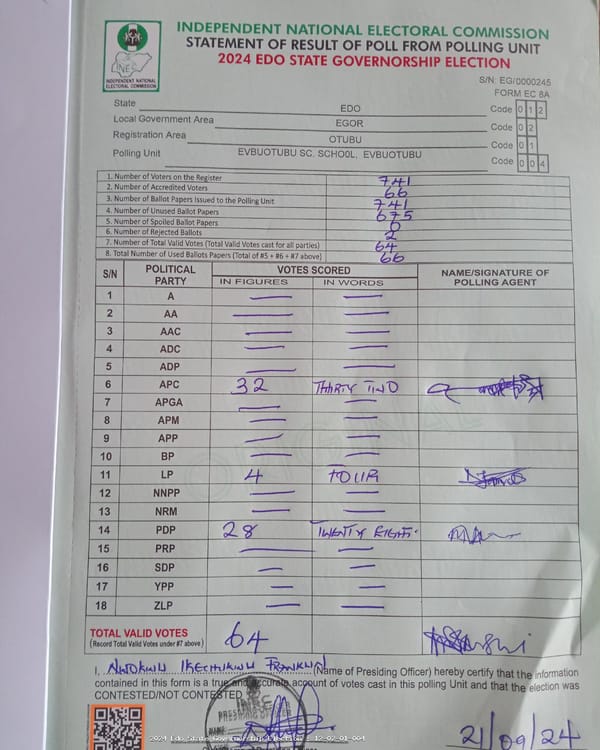 INDEPENDENT NATIONAL ELECTORAL COMMISSION
STATEMENT OF RESULT OF POLL FROM POLLING UNIT
2024 EDO STATE GOVERNORSHIP ELECTION
INEC
INDEPENDENT NATIONAL
ELECTORAL COMMISSION
S/N: EG/0000245
FORM EC 8A
State EDO Code 0 1 2
Local Government Area EGOR Code 0 2
Registration Area OTUBU Code 0 1
Polling Unit EVBUOTUBU SC. SCHOOL, EVBUOTUBU Code 0 0 4
1. Number of Voters on the Register 741
2. Number of Accredited Voters 66
3. Number of Ballot Papers Issued to the Polling Unit 741
4. Number of Unused Ballot Papers 675
5. Number of Spoiled Ballot Papers 0
6. Number of Rejected Ballots 2
7. Number of Total Valid Votes (Total Valid Votes cast for all parties) 64
8. Total Number of Used Ballots Papers (Total of #5 + #6 + #7 above) 66
S/N POLITICAL PARTY VOTES SCORED NAME/SIGNATURE OF POLLING AGENT
IN FIGURES IN WORDS
1 A
2 AA
3 AAC
4 ADC
5 ADP
6 APC 32 THIRTY TWO
7 APGA
8 APM
9 APP
10 BP
11 LP 4 FOUR
12 NNPP
13 NRM
14 PDP 28 TWENTY EIGHT
15 PRP
16 SDP
17 YPP
18 ZLP
TOTAL VALID VOTES 64
(Record Total Valid Votes under #7 above)
I, NWOKWU IKECHUKWU FRANKLIN (Name of Presiding Officer) hereby certify that the information
contained in this form is a true and accurate account of votes cast in this polling Unit and that the election was
CONTESTED/NOT CONTESTED
PRESIDING OFFICER
2024 Edo State Governorship Election - 12-02-01-004
21/09/24